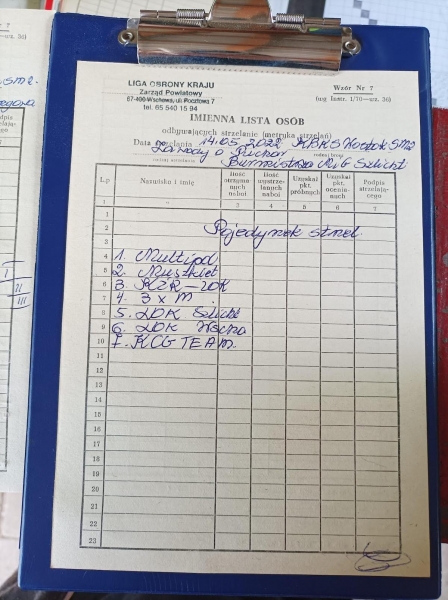 Wzór Nr 7
(wg Instr. 1/70—wz. 36)
LIGA OBRONY KRAJU
Zarząd Powiatowy
67-400 Wschowa, ul. Pocztowa 7
tel. 65 540 15 94
IMIENNA LISTA OSÓB
odbywających strzelanie (metryka strzelań)
Data strzelania 14.05.2022
Zawody o Puchar
Burmistrza M i G Szlicht
Lp
Nazwisko i imię
Ilość otrzymanych naboi
Ilość wystrzelanych naboi
Uzyskał pkt. próbnych
Uzyskał pkt. ocenianych
Podpis strzelającego
1 2 3 4 5 6 7
1
2 Pojedynek strzel.
3
4 1. Multipol
5 2. Muszkiet
6 3. KŻR - LOK
7 4. 3 x M.
8 5. LOK Szlicht
9 6. LOK Wscho
10 7. KCG TEAM
11
12
13
14
15
16
17
18
19
20
21
22
23